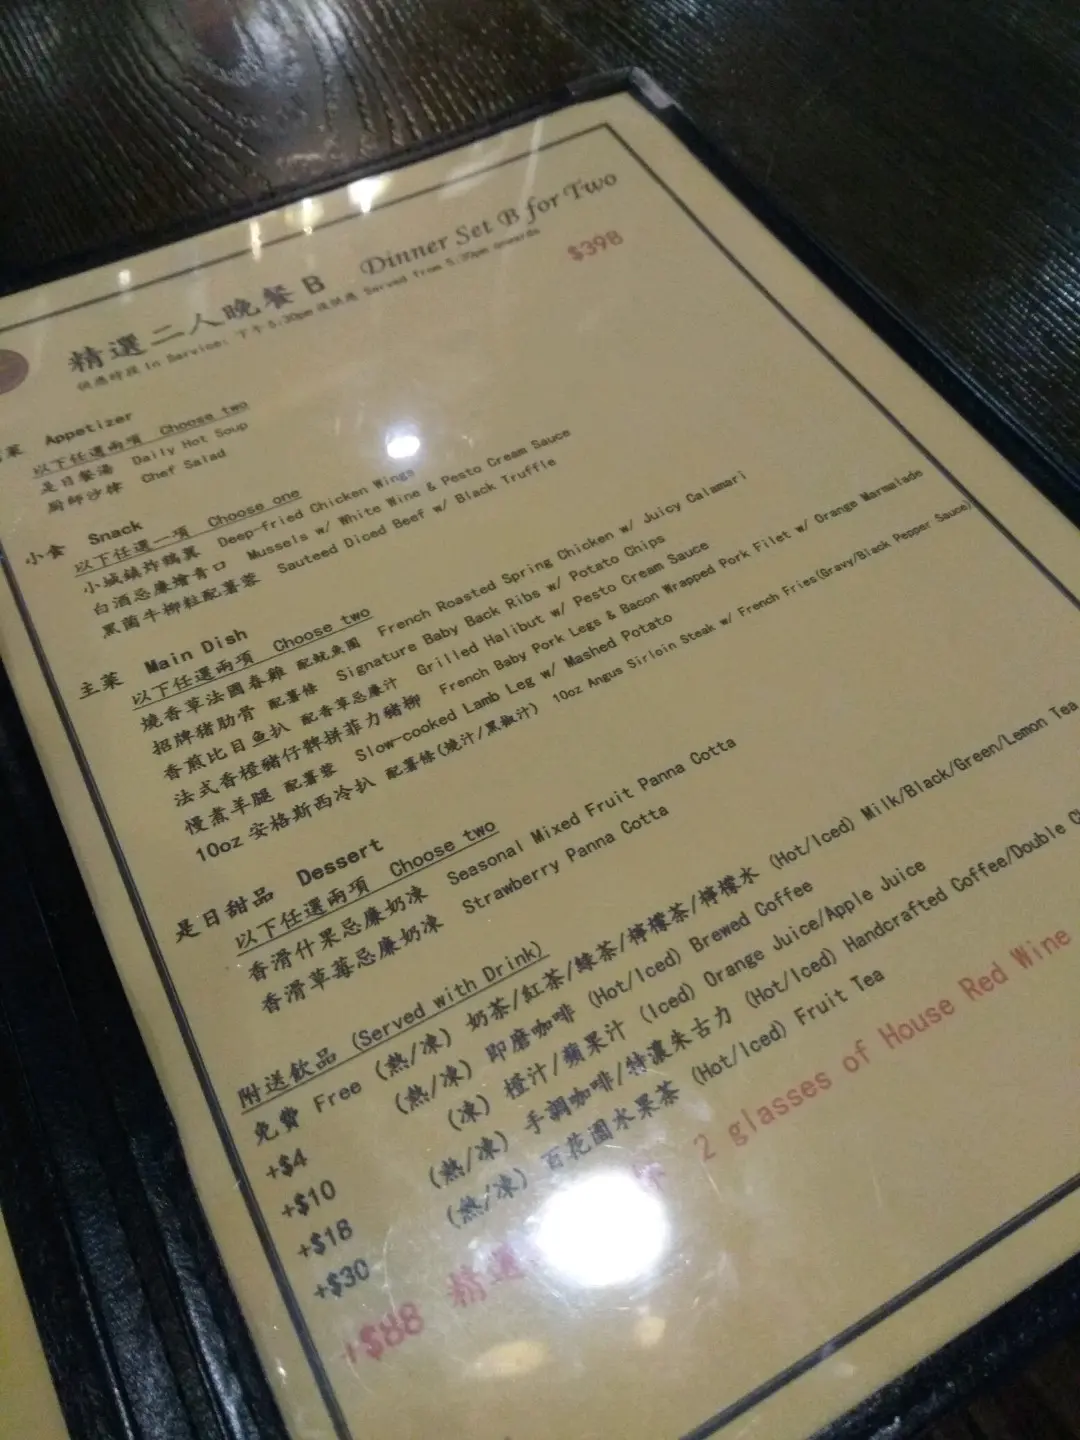 精選二人晚餐 B Dinner Set B for Two
供應時段 In Service: 下午5:30pm 後供應 Served from 5:30pm onwards
$398
菜 Appetizer
以下任選兩項 Choose two
是日餐湯 Daily Hot Soup
廚師沙律 Chef Salad
小食 Snack
以下任選一項 Choose one
小城鎮炸鷄翼 Deep-fried Chicken Wings
白酒忌廉燴青口 Mussels w/ White Wine & Pesto Cream Sauce
黑菌牛柳粒配薯蓉 Sauteed Diced Beef w/ Black Truffle
主菜 Main Dish
以下任選兩項 Choose two
燒香草法國春雞 配魷魚圈 French Roasted Spring Chicken w/ Juicy Calamari
招牌猪肋骨 配薯條 Signature Baby Back Ribs w/ Potato Chips
香煎比目魚扒 配香草忌廉汁 Grilled Halibut w/ Pesto Cream Sauce
法式香橙豬仔髀拼菲力豬柳 French Baby Pork Legs & Bacon Wrapped Pork Filet w/ Orange Marmalade
慢煮羊腿 配薯蓉 Slow-cooked Lamb Leg w/ Mashed Potato
10oz 安格斯西冷扒 配薯條(燒汁/黑椒汁) 10oz Angus Sirloin Steak w/ French Fries(Gravy/Black Pepper Sauce)
是日甜品 Dessert
以下任選兩項 Choose two
香滑什果忌廉奶凍 Seasonal Mixed Fruit Panna Cotta
香滑草莓忌廉奶凍 Strawberry Panna Cotta
附送飲品 (Served with Drink)
免費 Free (熱/凍) 奶茶/紅茶/綠茶/檸檬茶/檸檬水 (Hot/Iced) Milk/Black/Green/Lemon Tea
+$4 (熱/凍) 即磨咖啡 (Hot/Iced) Brewed Coffee
+$10 (凍) 橙汁/蘋果汁 (Iced) Orange Juice/Apple Juice
+$18 (熱/凍) 手調咖啡/特濃朱古力 (Hot/Iced) Handcrafted Coffee/Double
+$30 (熱/凍) 百花園水果茶 (Hot/Iced) Fruit Tea
+$88 精選 2 glasses of House Red Wine